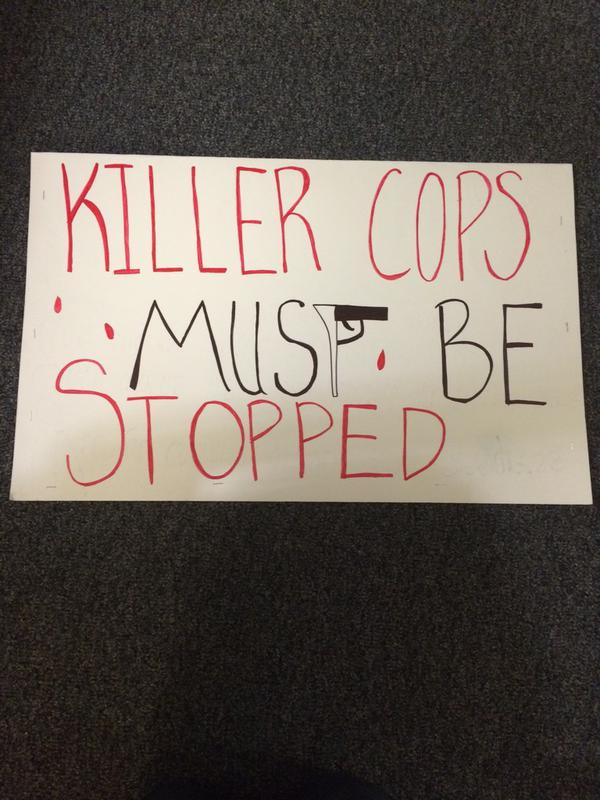 KILLER COPS
MUST BE
STOPPED